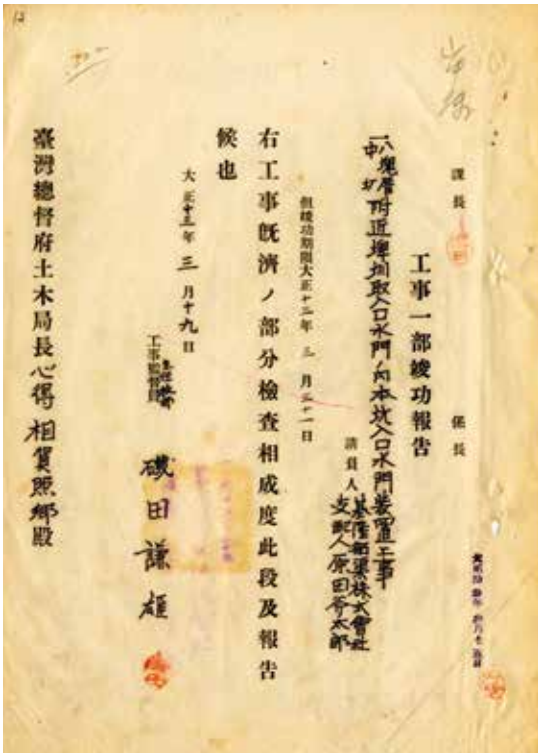 課長 係長
工事一部竣功報告
一八塊厝中圳附近埤圳取入口水門ノ内本坑入口水門装置工事
請負人 基隆船渠株式會社
支配人 原田斧太郎
但竣功期限大正十三年三月三十一日
右工事既濟ノ部分檢查相成度此段及報告
候也
大正十三年三月十九日
工事監督員 磯田謙雄
臺灣總督府土木局長心得 相賀照鄉殿
12